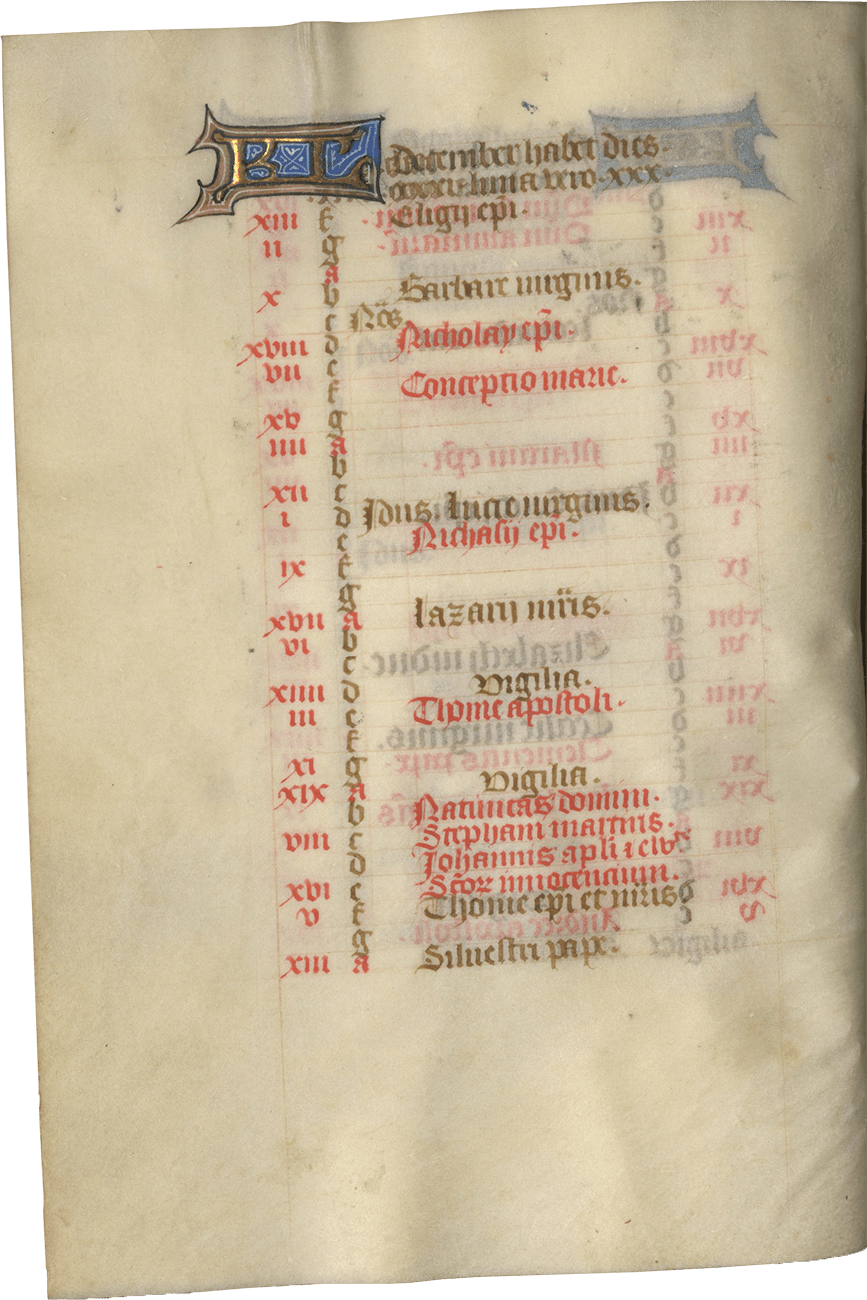 KL December habet dies
xxxi. luna vero .xxx.
xiii f Eligii ep̄i.
ii g
a
x b Barbare uirginis.
c Nōs
xviii d Nicholay ep̄i.
vii e
f Conceptio marie.
xv g
iiii a
b
xii c
i d Idus. Lucie uirginis.
e Nichasii ep̄i.
ix f
g
xvii a Lazarii mr̄is.
vi b
c
xiiii d Vigilia.
iii e Thome apostoli.
f
xi g
xix a Vigilia.
b Natiuitas domini.
viii c Stephani martiris.
d Johannis apl̄i ⁊
xvi e Sc̄oꝝ innocencium.
v f Thome ep̄i et mr̄is
g
xiii a Siluestri pape.